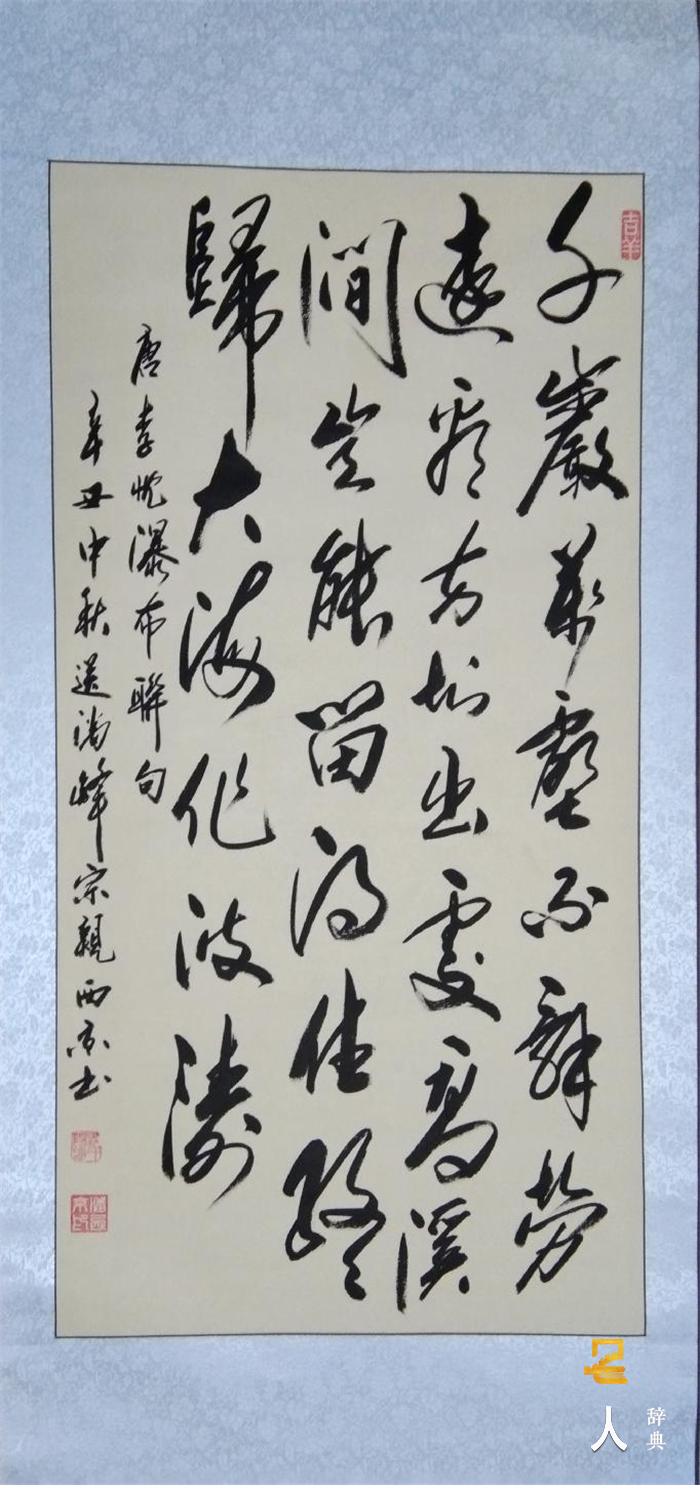 千巖萬壑不辭勞
遠看方知出處高溪
澗豈能留得住終
歸大海作波濤
唐李忱瀑布聯句
辛丑中秋送峰宗親西京书
吉羊
人
辞典